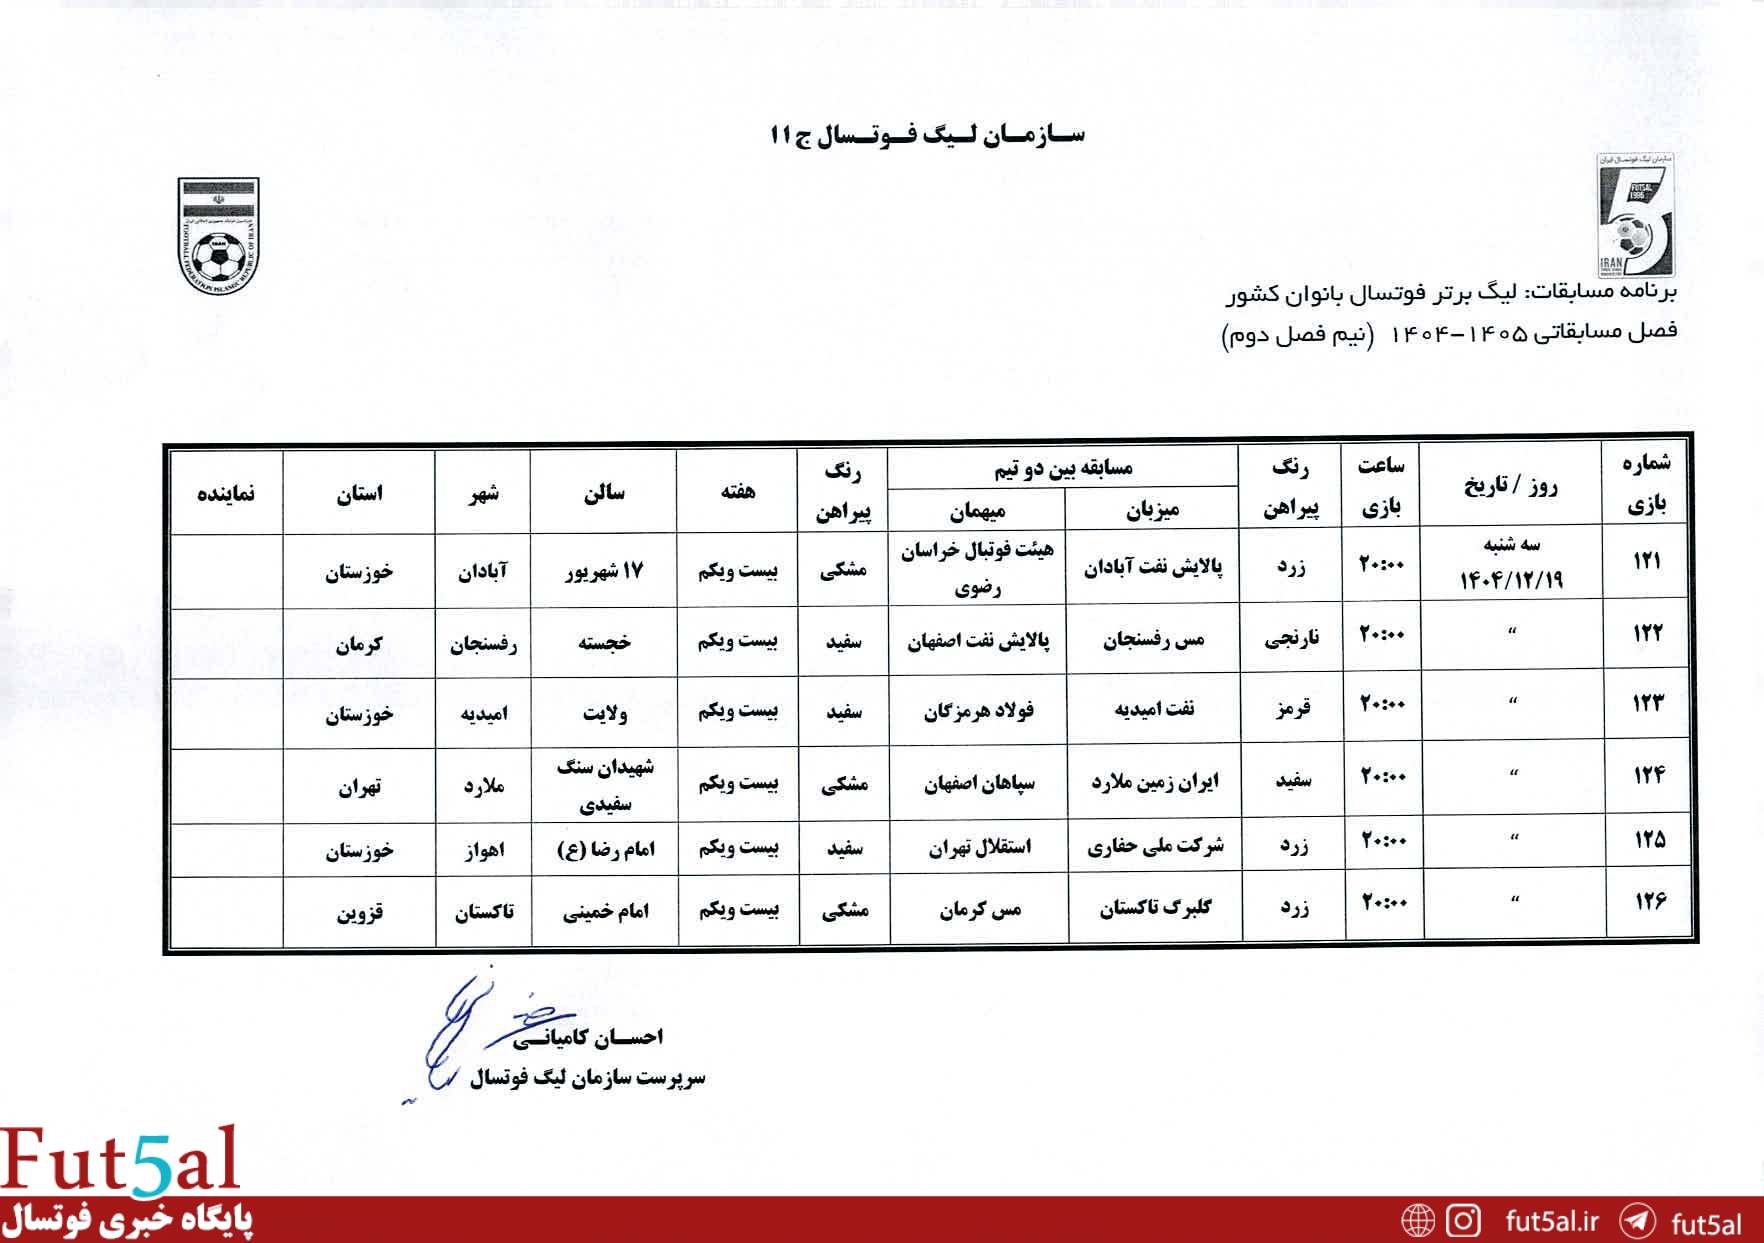 سازمان لیگ فوتسال ج۱۱
سازمان لیگ فوتسال ایران
FUTSAL
1996
5
IRAN
IRAN
FOOTBALL FEDERATION ISLAMIC REPUBLIC OF IRAN
برنامه مسابقات: لیگ برتر فوتسال بانوان کشور
فصل مسابقاتی ۱۴۰۵-۱۴۰۴ (نیم فصل دوم)
شماره بازی | روز / تاریخ | ساعت بازی | رنگ پیراهن | مسابقه بین دو تیم | رنگ پیراهن | هفته | سالن | شهر | استان | نماینده
میزبان | میهمان
۱۲۱ | سه شنبه ۱۴۰۴/۱۲/۱۹ | ۲۰:۰۰ | زرد | پالایش نفت آبادان | هیئت فوتبال خراسان رضوی | مشکی | بیست ویکم | ۱۷ شهریور | آبادان | خوزستان
۱۲۲ | “ | ۲۰:۰۰ | نارنجی | مس رفسنجان | پالایش نفت اصفهان | سفید | بیست ویکم | خجسته | رفسنجان | کرمان
۱۲۳ | “ | ۲۰:۰۰ | قرمز | نفت امیدیه | فولاد هرمزگان | سفید | بیست ویکم | ولایت | امیدیه | خوزستان
۱۲۴ | “ | ۲۰:۰۰ | سفید | ایران زمین ملارد | سپاهان اصفهان | مشکی | بیست ویکم | شهیدان سنگ سفیدی | ملارد | تهران
۱۲۵ | “ | ۲۰:۰۰ | زرد | شرکت ملی حفاری | استقلال تهران | سفید | بیست ویکم | امام رضا (ع) | اهواز | خوزستان
۱۲۶ | “ | ۲۰:۰۰ | زرد | گلبرگ تاکستان | مس کرمان | مشکی | بیست ویکم | امام خمینی | تاکستان | قزوین
احسان کامیانی
سرپرست سازمان لیگ فوتسال
Fut5al
پایگاه خبری فوتسال
fut5al.ir
fut5al